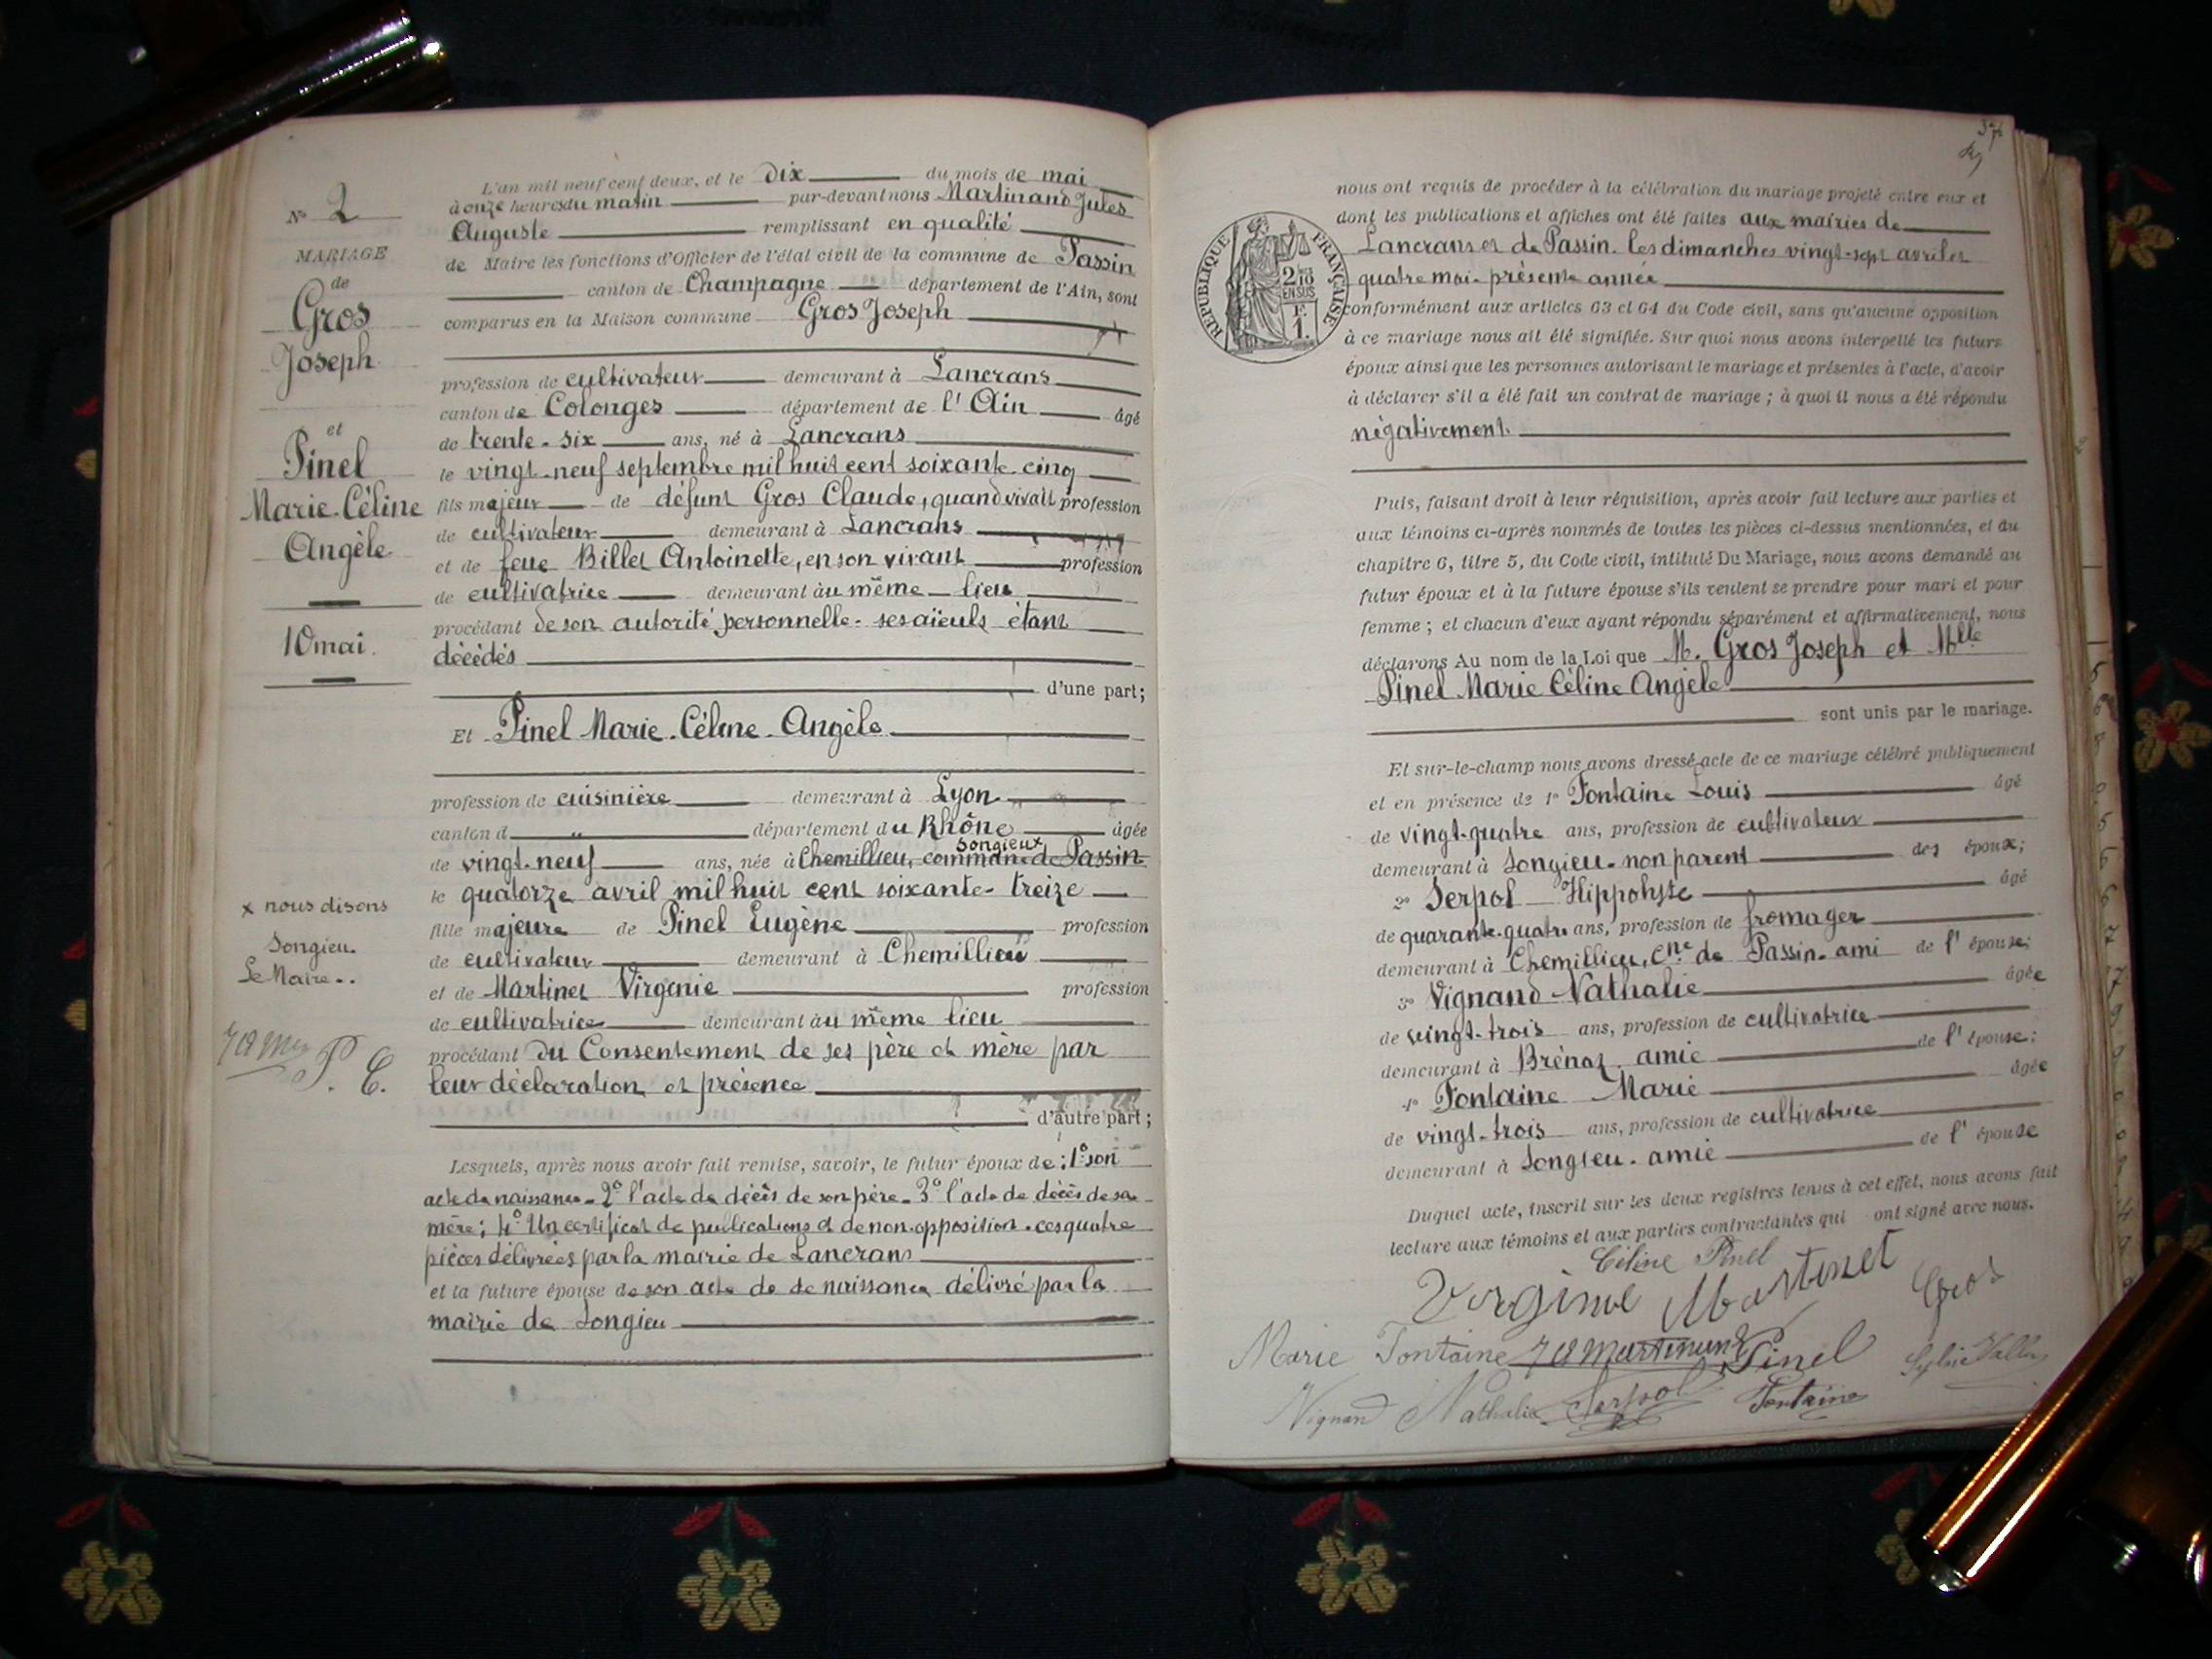 N° 2
MARIAGE
de
Gros
Joseph
et
Pinel
Marie-Céline
Angèle
10 mai.
x nous disons
Songieu.
Le Maire..
P. C.
L'an mil neuf cent deux, et le dix du mois de mai
à onze heures du matin par-devant nous Martinand Jules
Auguste remplissant en qualité
de Maire les fonctions d'Officier de l'état civil de la commune de Passin
canton de Champagne département de l'Ain, sont
comparus en la Maison commune Gros Joseph
profession de cultivateur demeurant à Lancrans
canton de Colonges département de l'Ain âgé
de trente-six ans, né à Lancrans
le vingt-neuf septembre mil huit cent soixante-cinq
fils majeur de défunt Gros Claude, quand vivait profession
de cultivateur demeurant à Lancrans
et de feue Billet Antoinette, en son vivant profession
de cultivatrice demeurant au même lieu
procédant de son autorité personnelle - ses aïeuls étant
décédés
d'une part;
Et Pinel Marie-Céline-Angèle
profession de cuisinière demeurant à Lyon
canton d " département du Rhône âgée
Songieu x
de vingt-neuf ans, née à Chemillieu, commune de Passin
le quatorze avril mil huit cent soixante-treize
fille majeure de Pinel Eugène profession
de cultivateur demeurant à Chemillieu
et de Martinet Virginie profession
de cultivatrice demeurant au même lieu
procédant du Consentement de ses père et mère par
leur déclaration et présence
d'autre part;
Lesquels, après nous avoir fait remise, savoir, le futur époux de : 1° son
acte de naissance - 2° l'acte de décès de son père - 3° l'acte de décès de sa
mère; 4° Un certificat de publications et de non-opposition - ces quatre
pièces délivrées par la mairie de Lancrans
et la future épouse de son acte de de naissance délivré par la
mairie de Songieu
RÉPUBLIQUE FRANÇAISE
2/10
EN SUS
F.
1.
nous ont requis de procéder à la célébration du mariage projeté entre eux et
dont les publications et affiches ont été faites aux mairies de
Lancrans et de Passin. les dimanches vingt-sept avril et
quatre mai - présente année
conformément aux articles 63 et 64 du Code civil, sans qu'aucune opposition
à ce mariage nous ait été signifiée. Sur quoi nous avons interpellé les futurs
époux ainsi que les personnes autorisant le mariage et présentes à l'acte, d'avoir
à déclarer s'il a été fait un contrat de mariage ; à quoi il nous a été répondu
négativement.
Puis, faisant droit à leur réquisition, après avoir fait lecture aux parties et
aux témoins ci-après nommés de toutes les pièces ci-dessus mentionnées, et du
chapitre 6, titre 5, du Code civil, intitulé Du Mariage, nous avons demandé au
futur époux et à la future épouse s'ils veulent se prendre pour mari et pour
femme ; et chacun d'eux ayant répondu séparément et affirmativement, nous
déclarons Au nom de la Loi que M. Gros Joseph et Mlle
Pinel Marie Céline Angèle
sont unis par le mariage.
Et sur-le-champ nous avons dressé acte de ce mariage célébré publiquement
et en présence de 1° Fontaine Louis âgé
de vingt-quatre ans, profession de cultivateur
demeurant à Songieu - non parent des époux;
2° Serpol Hippolyte âgé
de quarante-quatre ans, profession de fromager
demeurant à Chemillieu, Cne de Passin - ami de l'épouse;
3° Vignand Nathalie âgée
de vingt-trois ans, profession de cultivatrice
demeurant à Brénaz - amie de l'épouse;
4° Fontaine Marie âgée
de vingt-trois ans, profession de cultivatrice
demeurant à Songieu - amie de l'épouse
Duquel acte, inscrit sur les deux registres tenus à cet effet, nous avons fait
lecture aux témoins et aux parties contractantes qui ont signé avec nous.
Céline Pinel
Virginie Martinet Gros
Marie Fontaine JA Martinand Pinel
Vignand Nathalie Serpol Fontaine